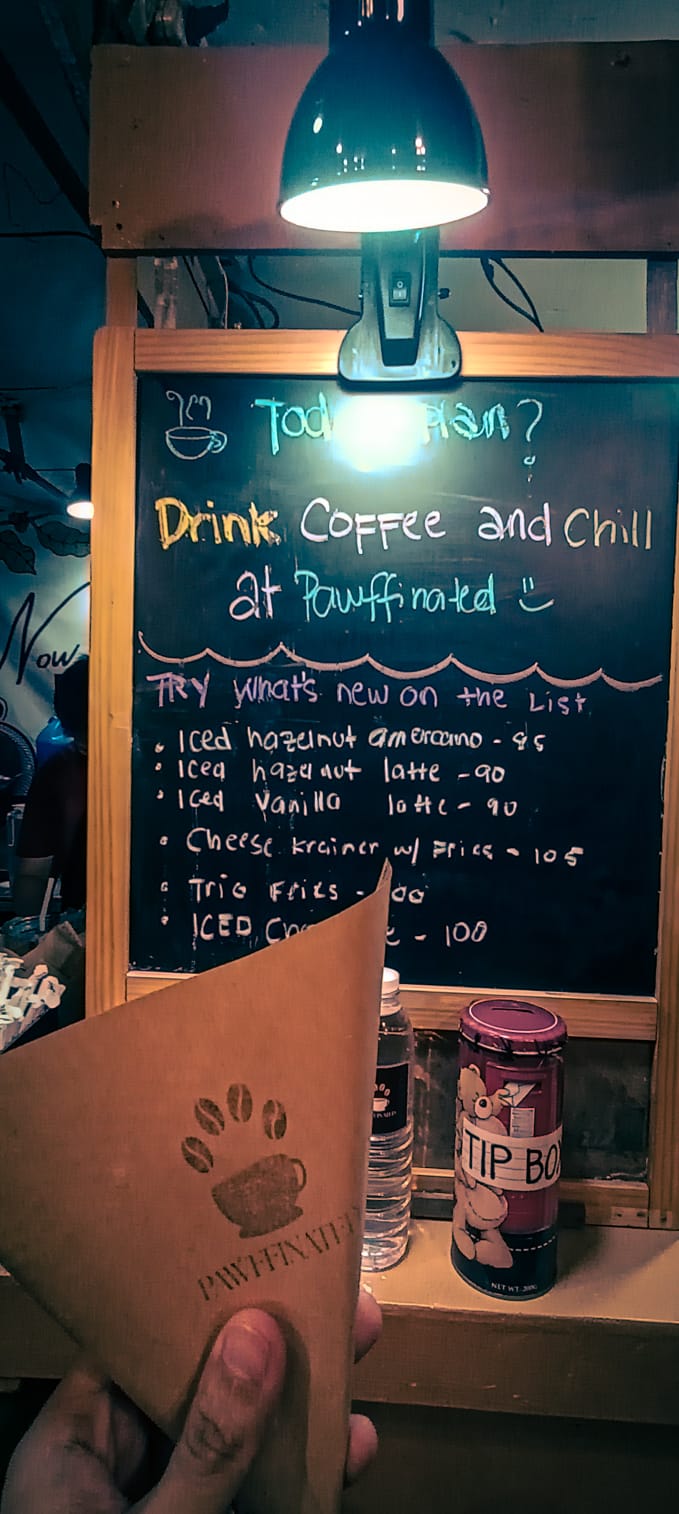 Today plan?
Drink Coffee and Chill
at Pawffinated
Now
TRY what's new on the List
Iced hazelnut amercano - 95
Iced hazelnut latte - 90
Iced Vanilla latte - 90
Cheese krainer w/ Fries - 105
Trio Fries -
ICED - 100
TIP BOX
NET WT.
PAWFFINATED